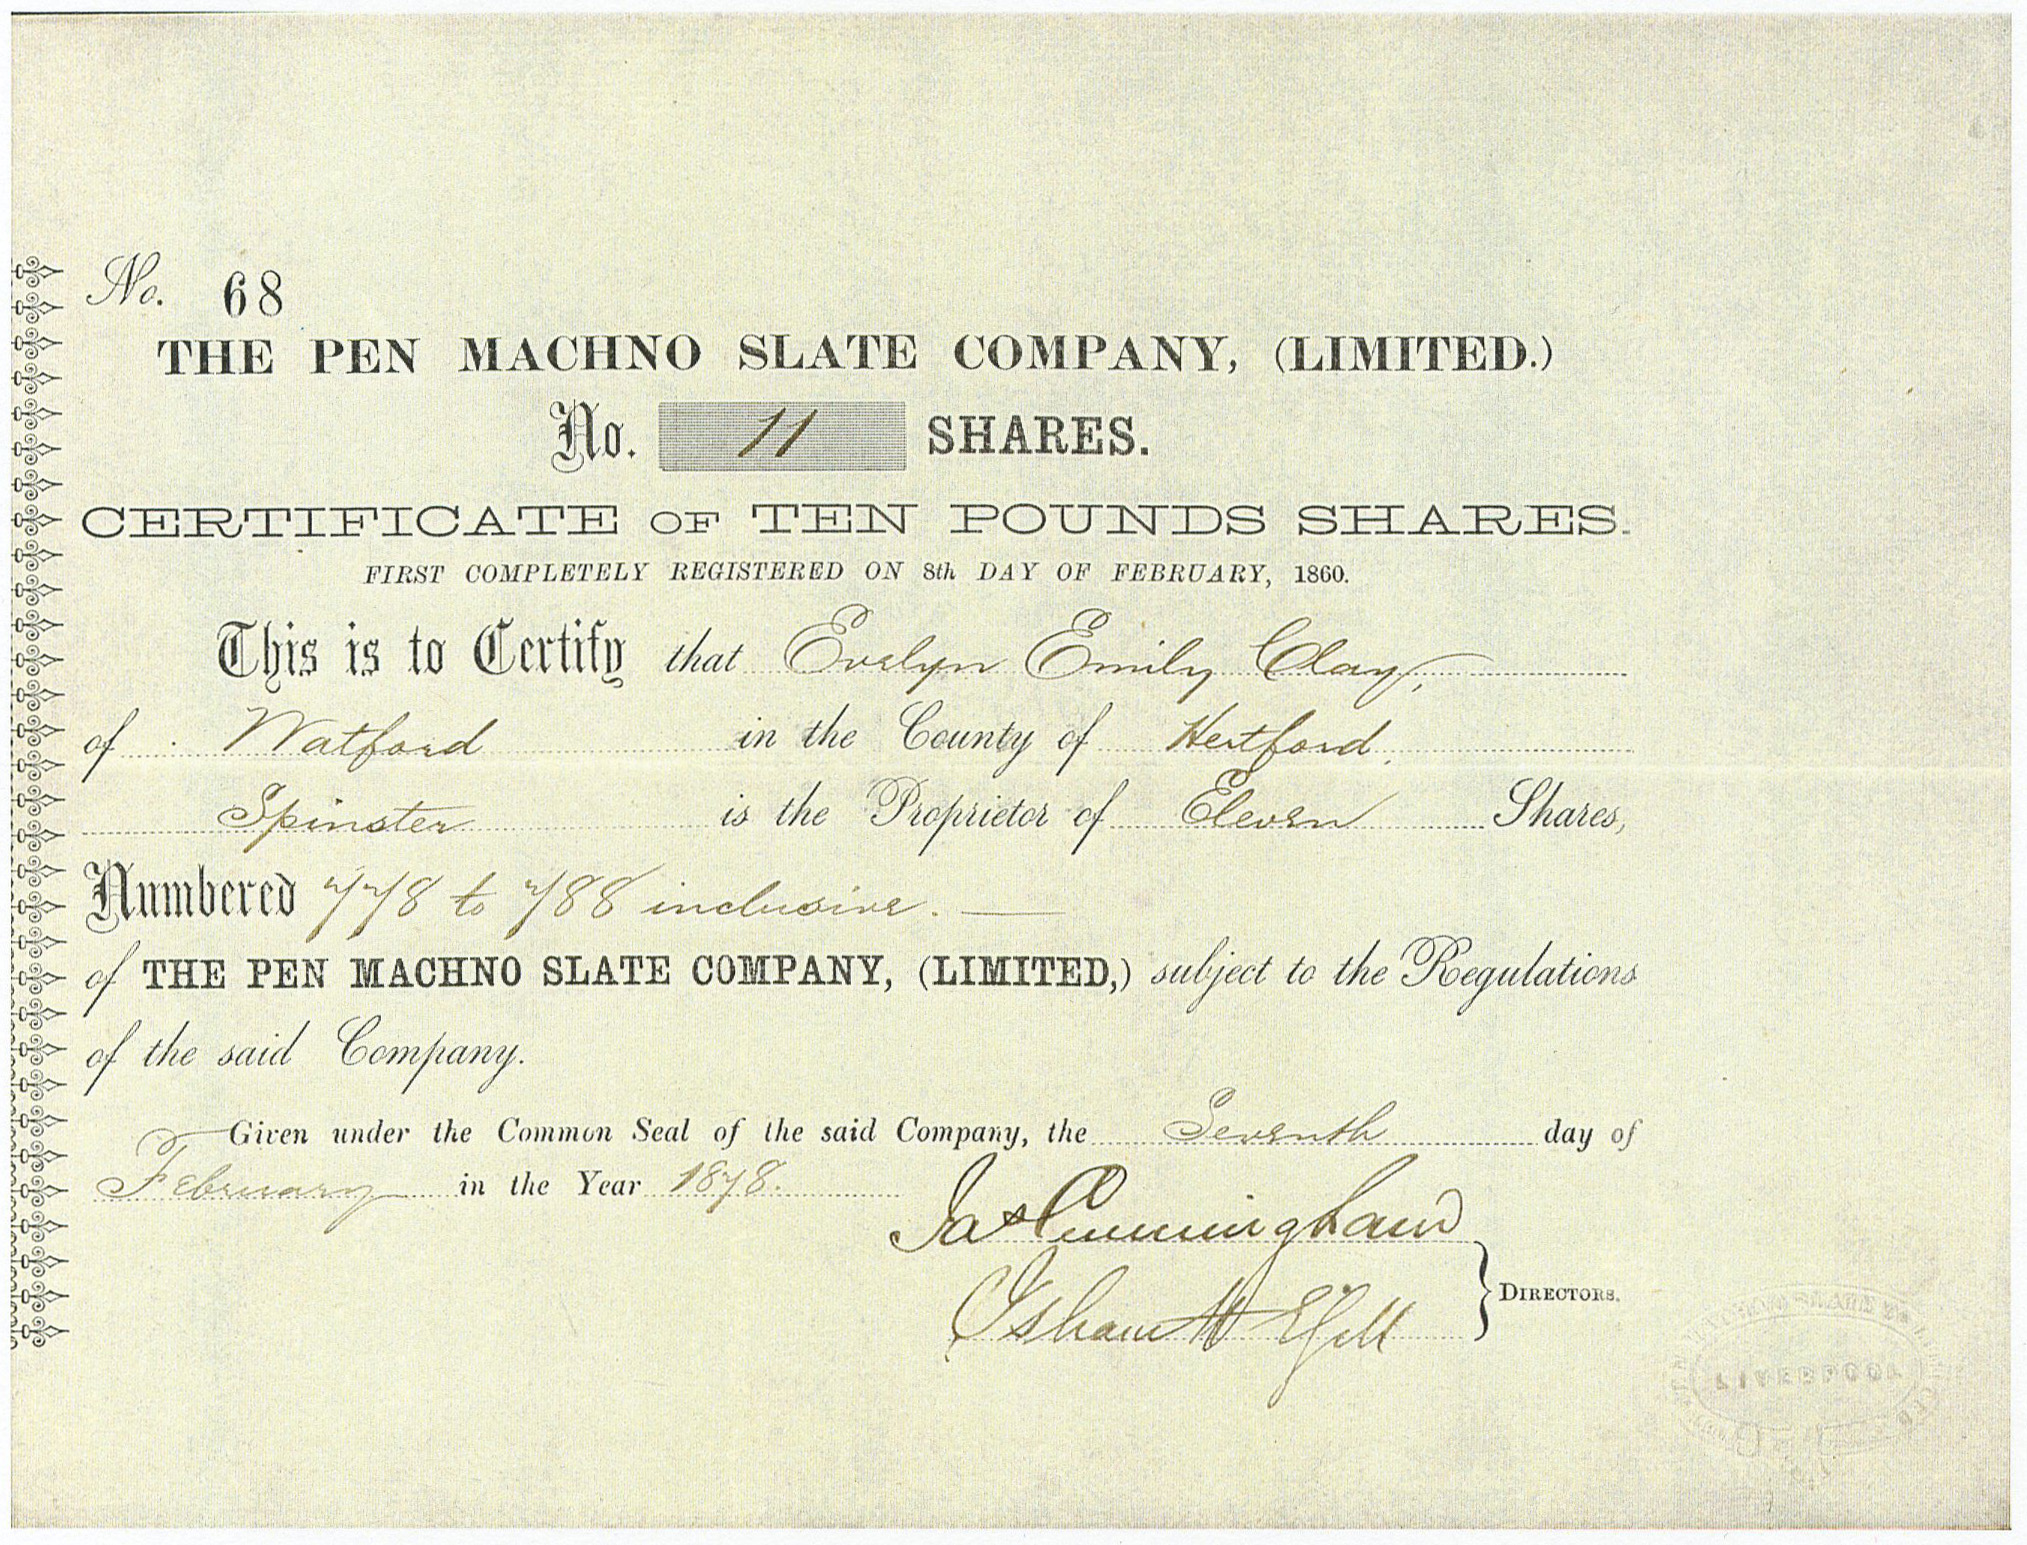 No. 68
THE PEN MACHNO SLATE COMPANY, (LIMITED.)
No. 11 SHARES.
CERTIFICATE OF TEN POUNDS SHARES.
FIRST COMPLETELY REGISTERED ON 8th DAY OF FEBRUARY, 1860.
This is to Certify that Evelyn Emily Clay,
of Watford in the County of Hertford,
Spinster is the Proprietor of Eleven Shares,
Numbered 778 to 788 inclusive.
of THE PEN MACHNO SLATE COMPANY, (LIMITED,) subject to the Regulations
of the said Company.
Given under the Common Seal of the said Company, the Seventh day of
February in the Year 1878.
Jas Cunningham
Isham H
DIRECTORS.
LIVERPOOL